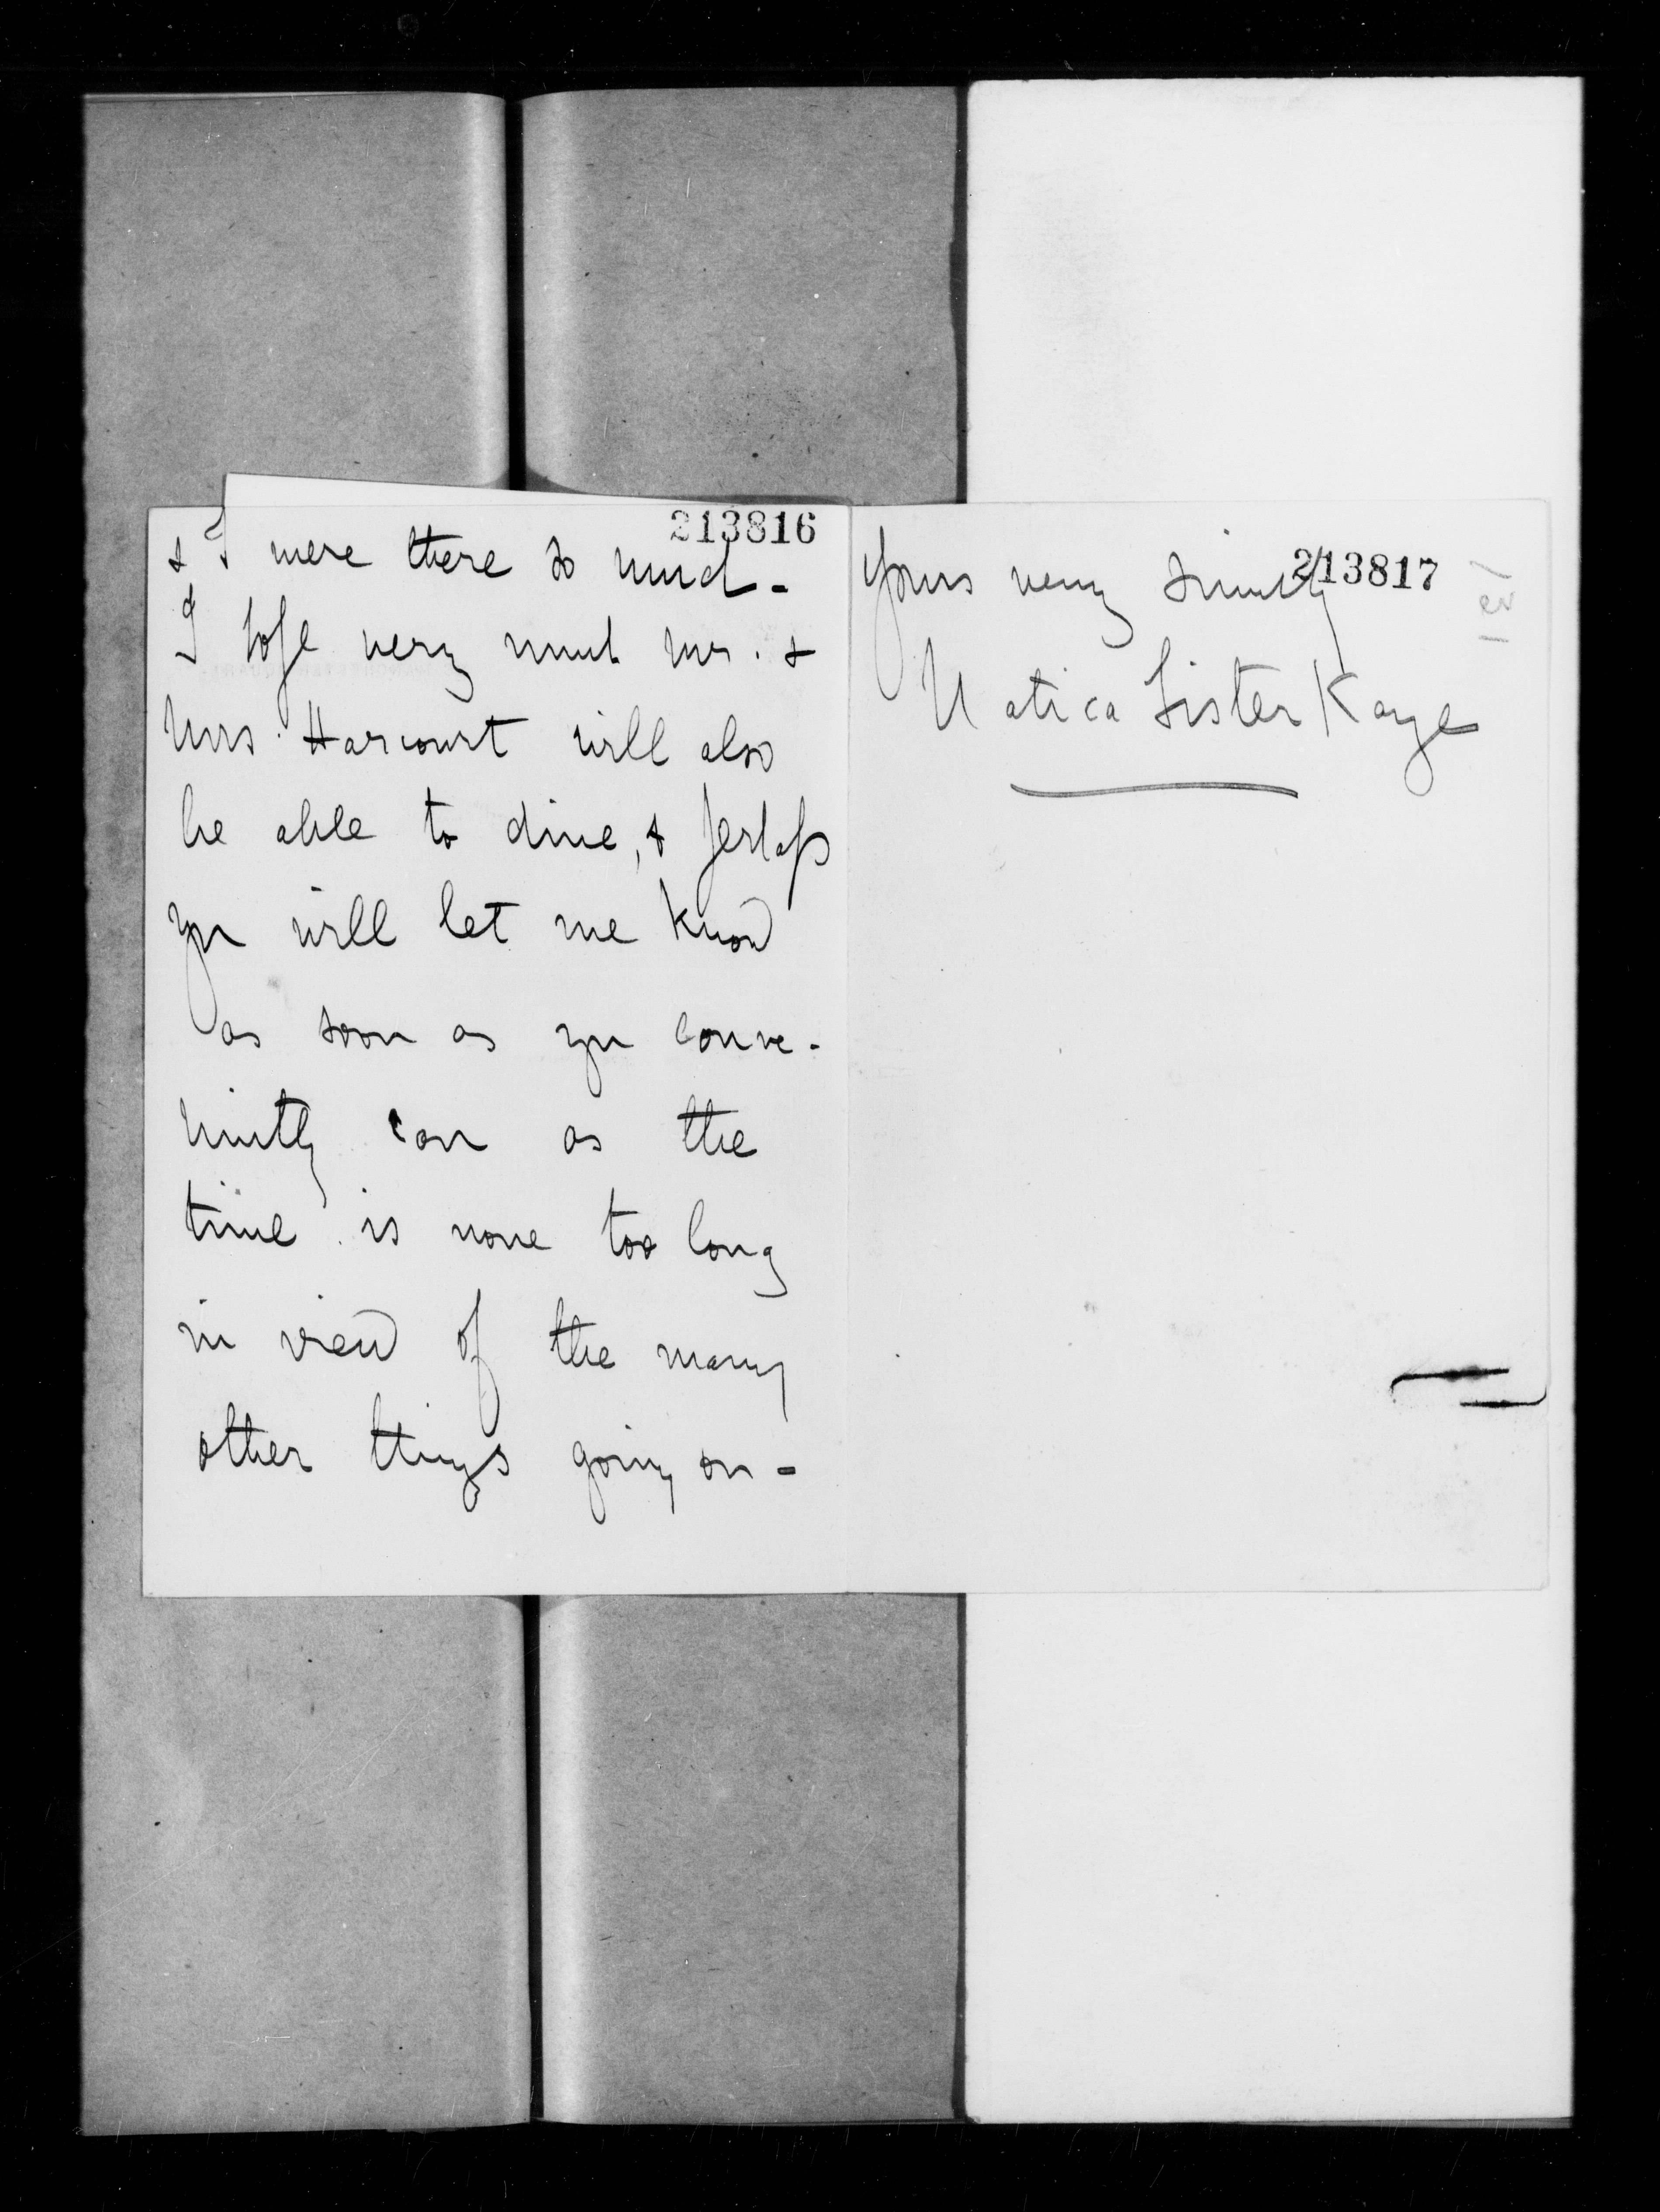 213816
& I were there so much -
I hope very much Mr. &
Mrs. Harcourt will also
be able to dine, & perhaps
you will let me know
as soon as you conve-
niently can as the
time is none too long
in view of the many
other things going on -
213817
Yours very sincerely
Natica Lister Kaye
131